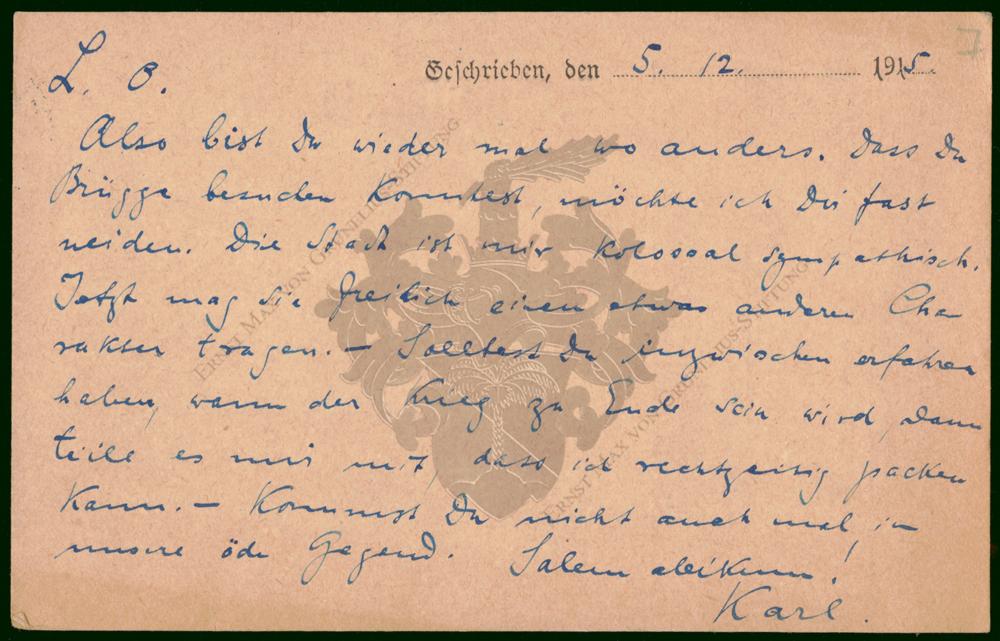 L. O.
Geschrieben, den 5. 12. 1915.
Also bist Du wieder mal wo anders. Dass Du
Brügge besuchen konntest, möchte ich Dir fast
neiden. Die Stadt ist mir kolossal sympathisch.
Jetzt mag sie freilich einen etwas anderen Cha
rakter tragen. – Solltest Du inzwischen erfahren
haben, wann der Krieg zu Ende sein wird, dann
teile es mir mit, dass ich rechtzeitig packen
kann. – Kommst Du nicht auch mal in
unsere öde Gegend. Salem aleikum!
Karl.
ERNST MAX VON GRUNELIUS-STIFTUNG
ERNST MAX VON GRUNELIUS-STIFTUNG